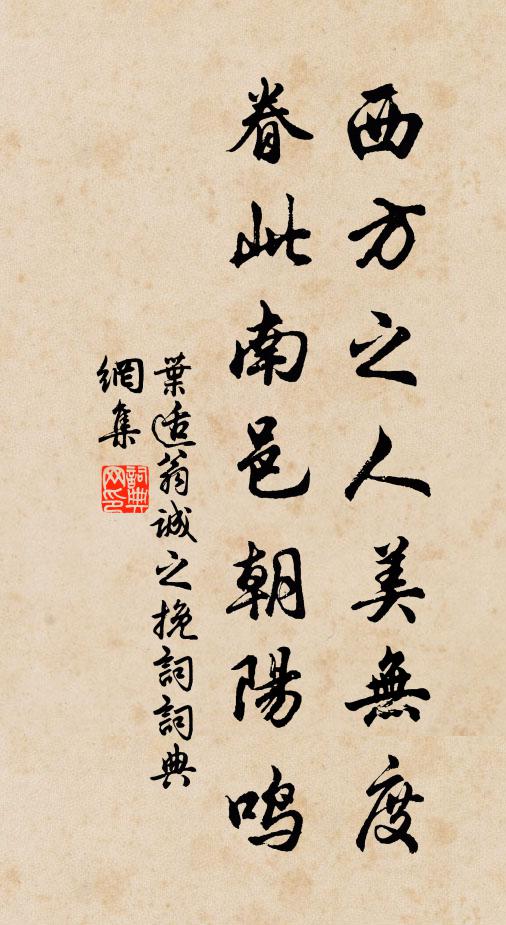 西方之人美無度
眷此南邑朝陽鳴
葉适翁誠之挽詞詞典
網集
詞典網印